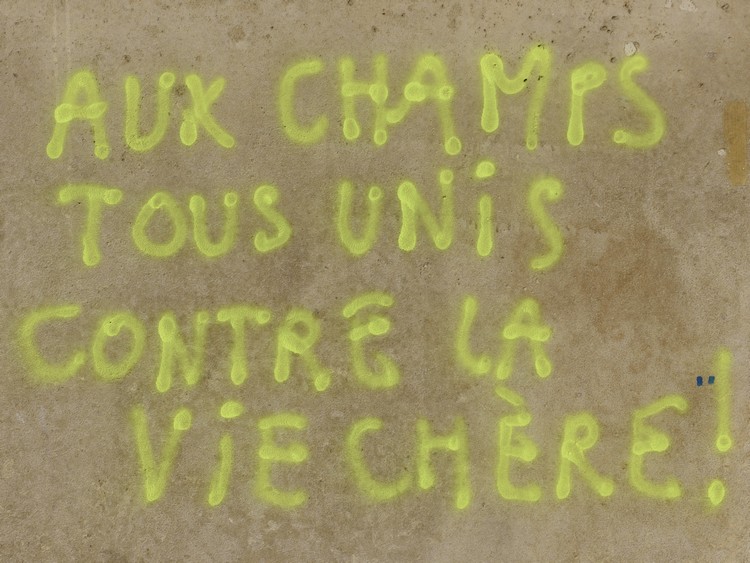 AUX CHAMPS
TOUS UNiS
CONTRE LA
ViE CHÈRE!